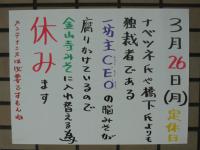 3月26日(月)定休日
ナベツネ氏や橋下氏よりも
独裁者である
一坊主CEOの脳みそが
腐りかけているので
金山寺みそに入れ替える為
休みます
メンテナンスは必要ですもんね